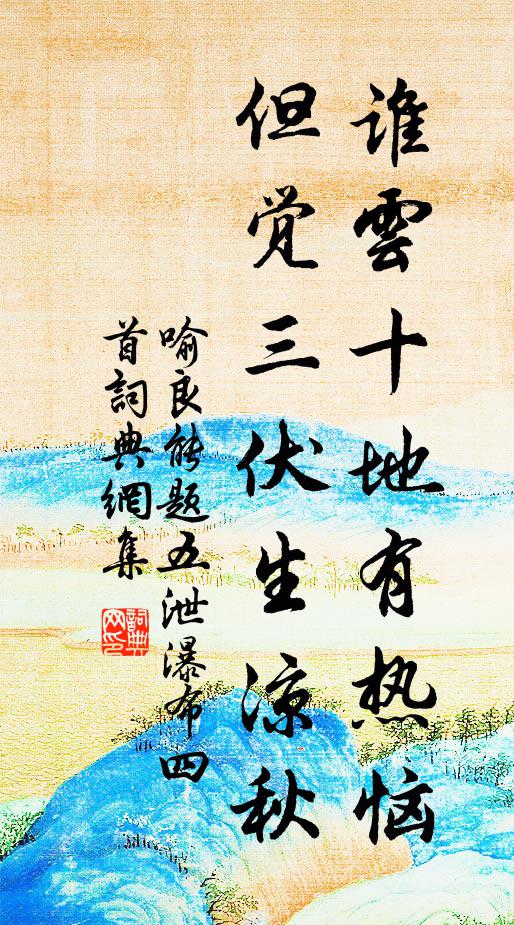 谁雲十地有热恼
但觉三伏生凉秋
喻良能题五泄瀑布四
首詞典網集
詞典網印